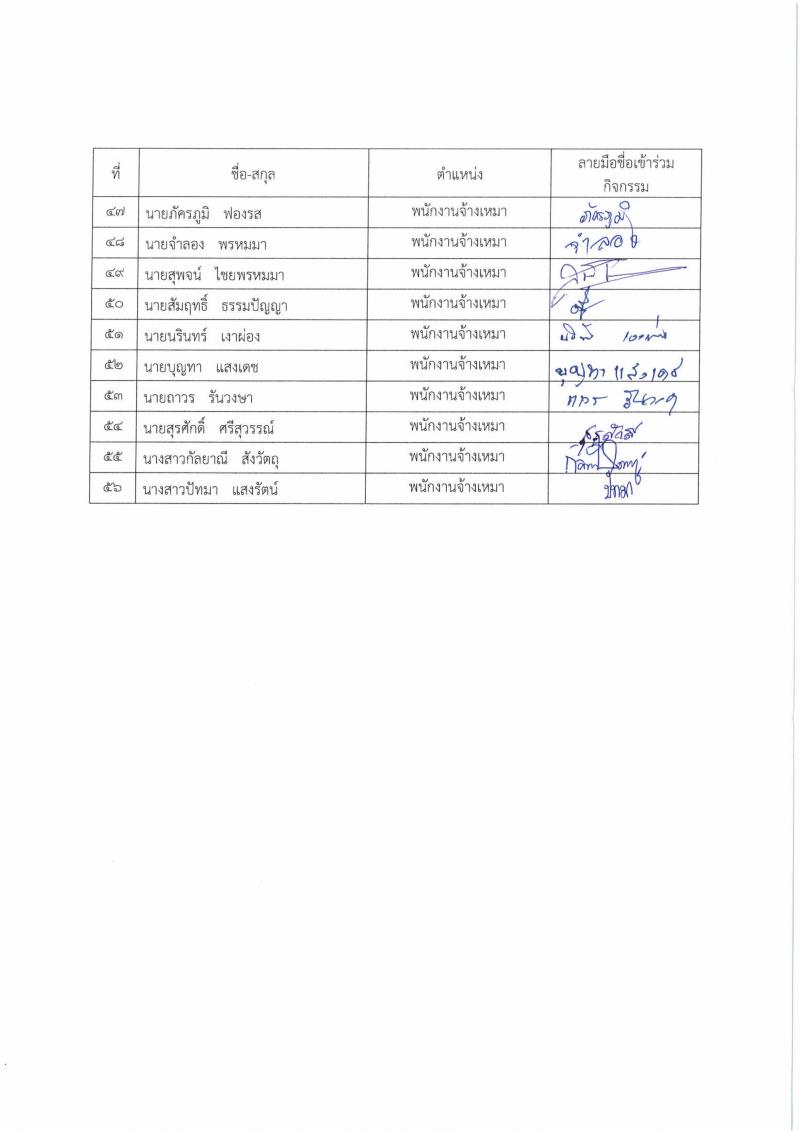 ที่ ชื่อ-สกุล ตำแหน่ง ลายมือชื่อเข้าร่วม
กิจกรรม
๔๗ นายภัครภูมิ ฟองรส พนักงานจ้างเหมา ภัครภูมิ
๔๘ นายจำลอง พรหมมา พนักงานจ้างเหมา จำลอง
๔๙ นายสุพจน์ ไชยพรหมมา พนักงานจ้างเหมา
๕๐ นายสัมฤทธิ์ ธรรมปัญญา พนักงานจ้างเหมา
๕๑ นายนรินทร์ เงาผ่อง พนักงานจ้างเหมา
๕๒ นายบุญทา แสงเดช พนักงานจ้างเหมา บุญทา แสงเดช
๕๓ นายถาวร รันวงษา พนักงานจ้างเหมา
๕๔ นายสุรศักดิ์ ศรีสุวรรณ์ พนักงานจ้างเหมา
๕๕ นางสาวกัลยาณี สังวัตถุ พนักงานจ้างเหมา
๕๖ นางสาวปัทมา แสงรัตน์ พนักงานจ้างเหมา ปัทมา